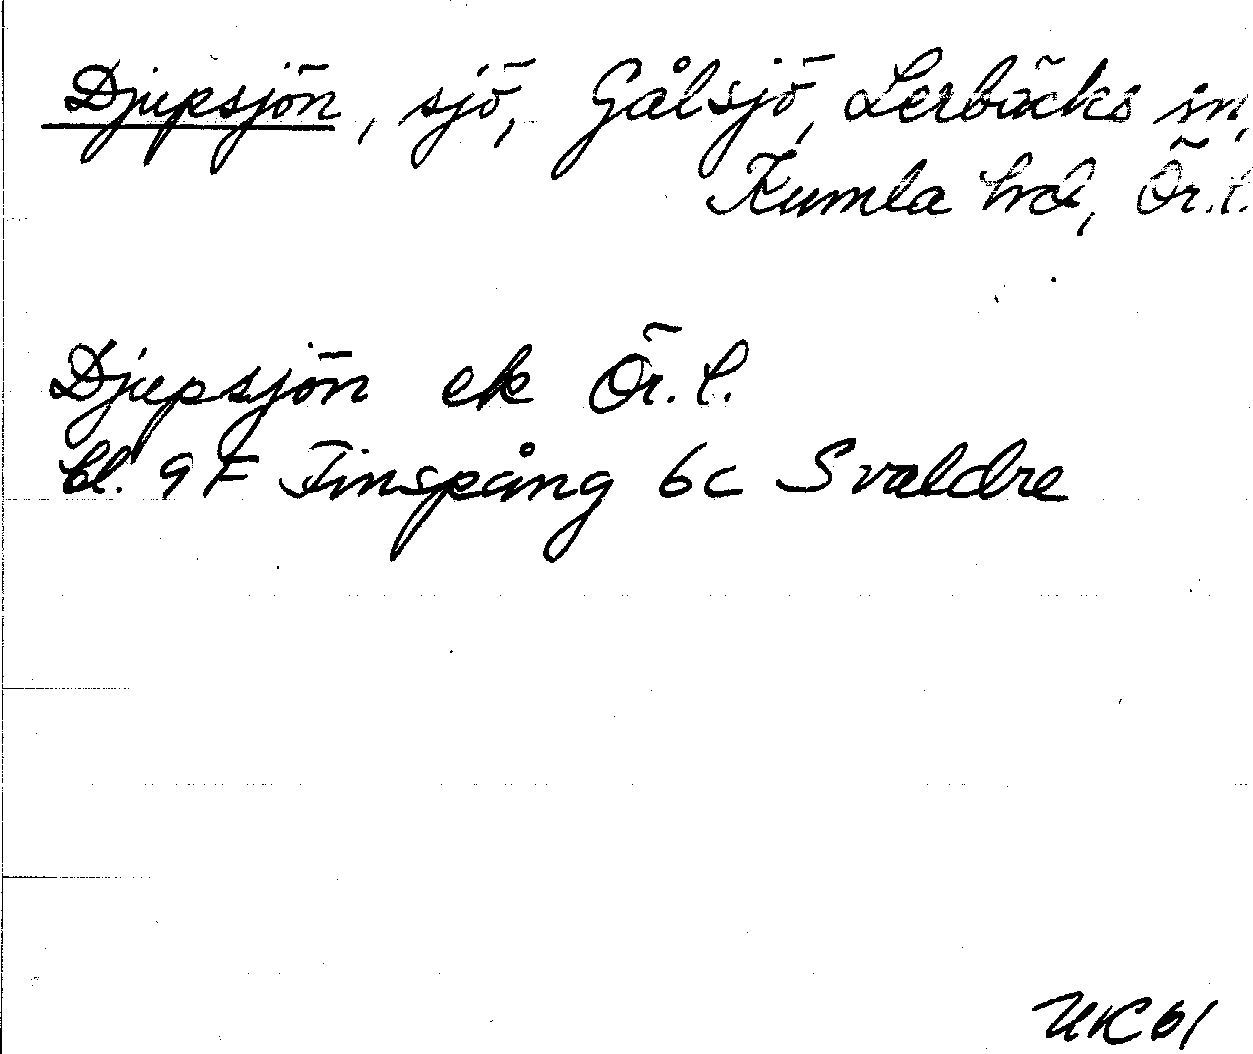 Djupsjön, sjö, Gålsjö, Lerbäcks sn,
Kumla hd, Ör.l.
Djupsjön ek Ör.l.
bl. 9F Finspång 6c Svaldre
UK61